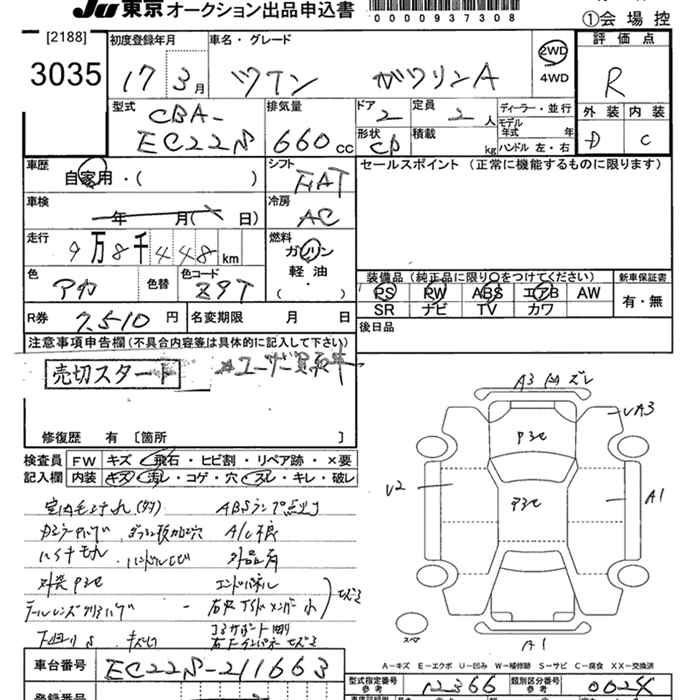 JU東京オークション出品申込書
0000937308
①会場控
[2188]
3035
初度登録年月
車名・グレード
17 3月
ツイン ガソリンA
2WD
4WD
評価点
R
型式
CBA-
EC22S
排気量
660cc
ドア
2
定員
2人
形状
CP
積載
kg
ディーラー・並行
モデル年式 年
ハンドル 左・右
外装
内装
D
C
車歴
自家用・( )
シフト
FAT
セールスポイント (正常に機能するものに限ります)
車検
年 月( 日)
冷房
AC
走行
9万8千448km
燃料
ガソリン
軽油
( )
色
アカ
色替
色コード
Z9T
装備品 (純正品に限り〇をつけてください)
新車保証書
PS PW ABS エアB AW
SR ナビ TV カワ
有・無
R券
7,510円
名変期限 月 日
後日品
注意事項申告欄 (不具合内容等は具体的に記入して下さい)
売切スタート
☆ユーザー買取車
修復歴 有 [箇所 ]
検査員
記入欄
FW キズ・飛石・ヒビ割・リペア跡・×要
内装 キズ・汚レ・コゲ・穴・スレ・キレ・破レ
ABSランプ点灯
A/C不良
ハイナモル
ハンドルヒビ
外品有
外装P3C
エンドパネル
テールレンズ
キズ
A3 ズレ
UA3
P3C
P3C
U2
A1
A1
スペア
A-キズ E-エクボ U-凹み W-補修跡 S-サビ C-腐食 XX-交換済
車台番号
EC22S-211663
登録番号
型式指定番号
参考
12366
類別区分番号
参考
0024